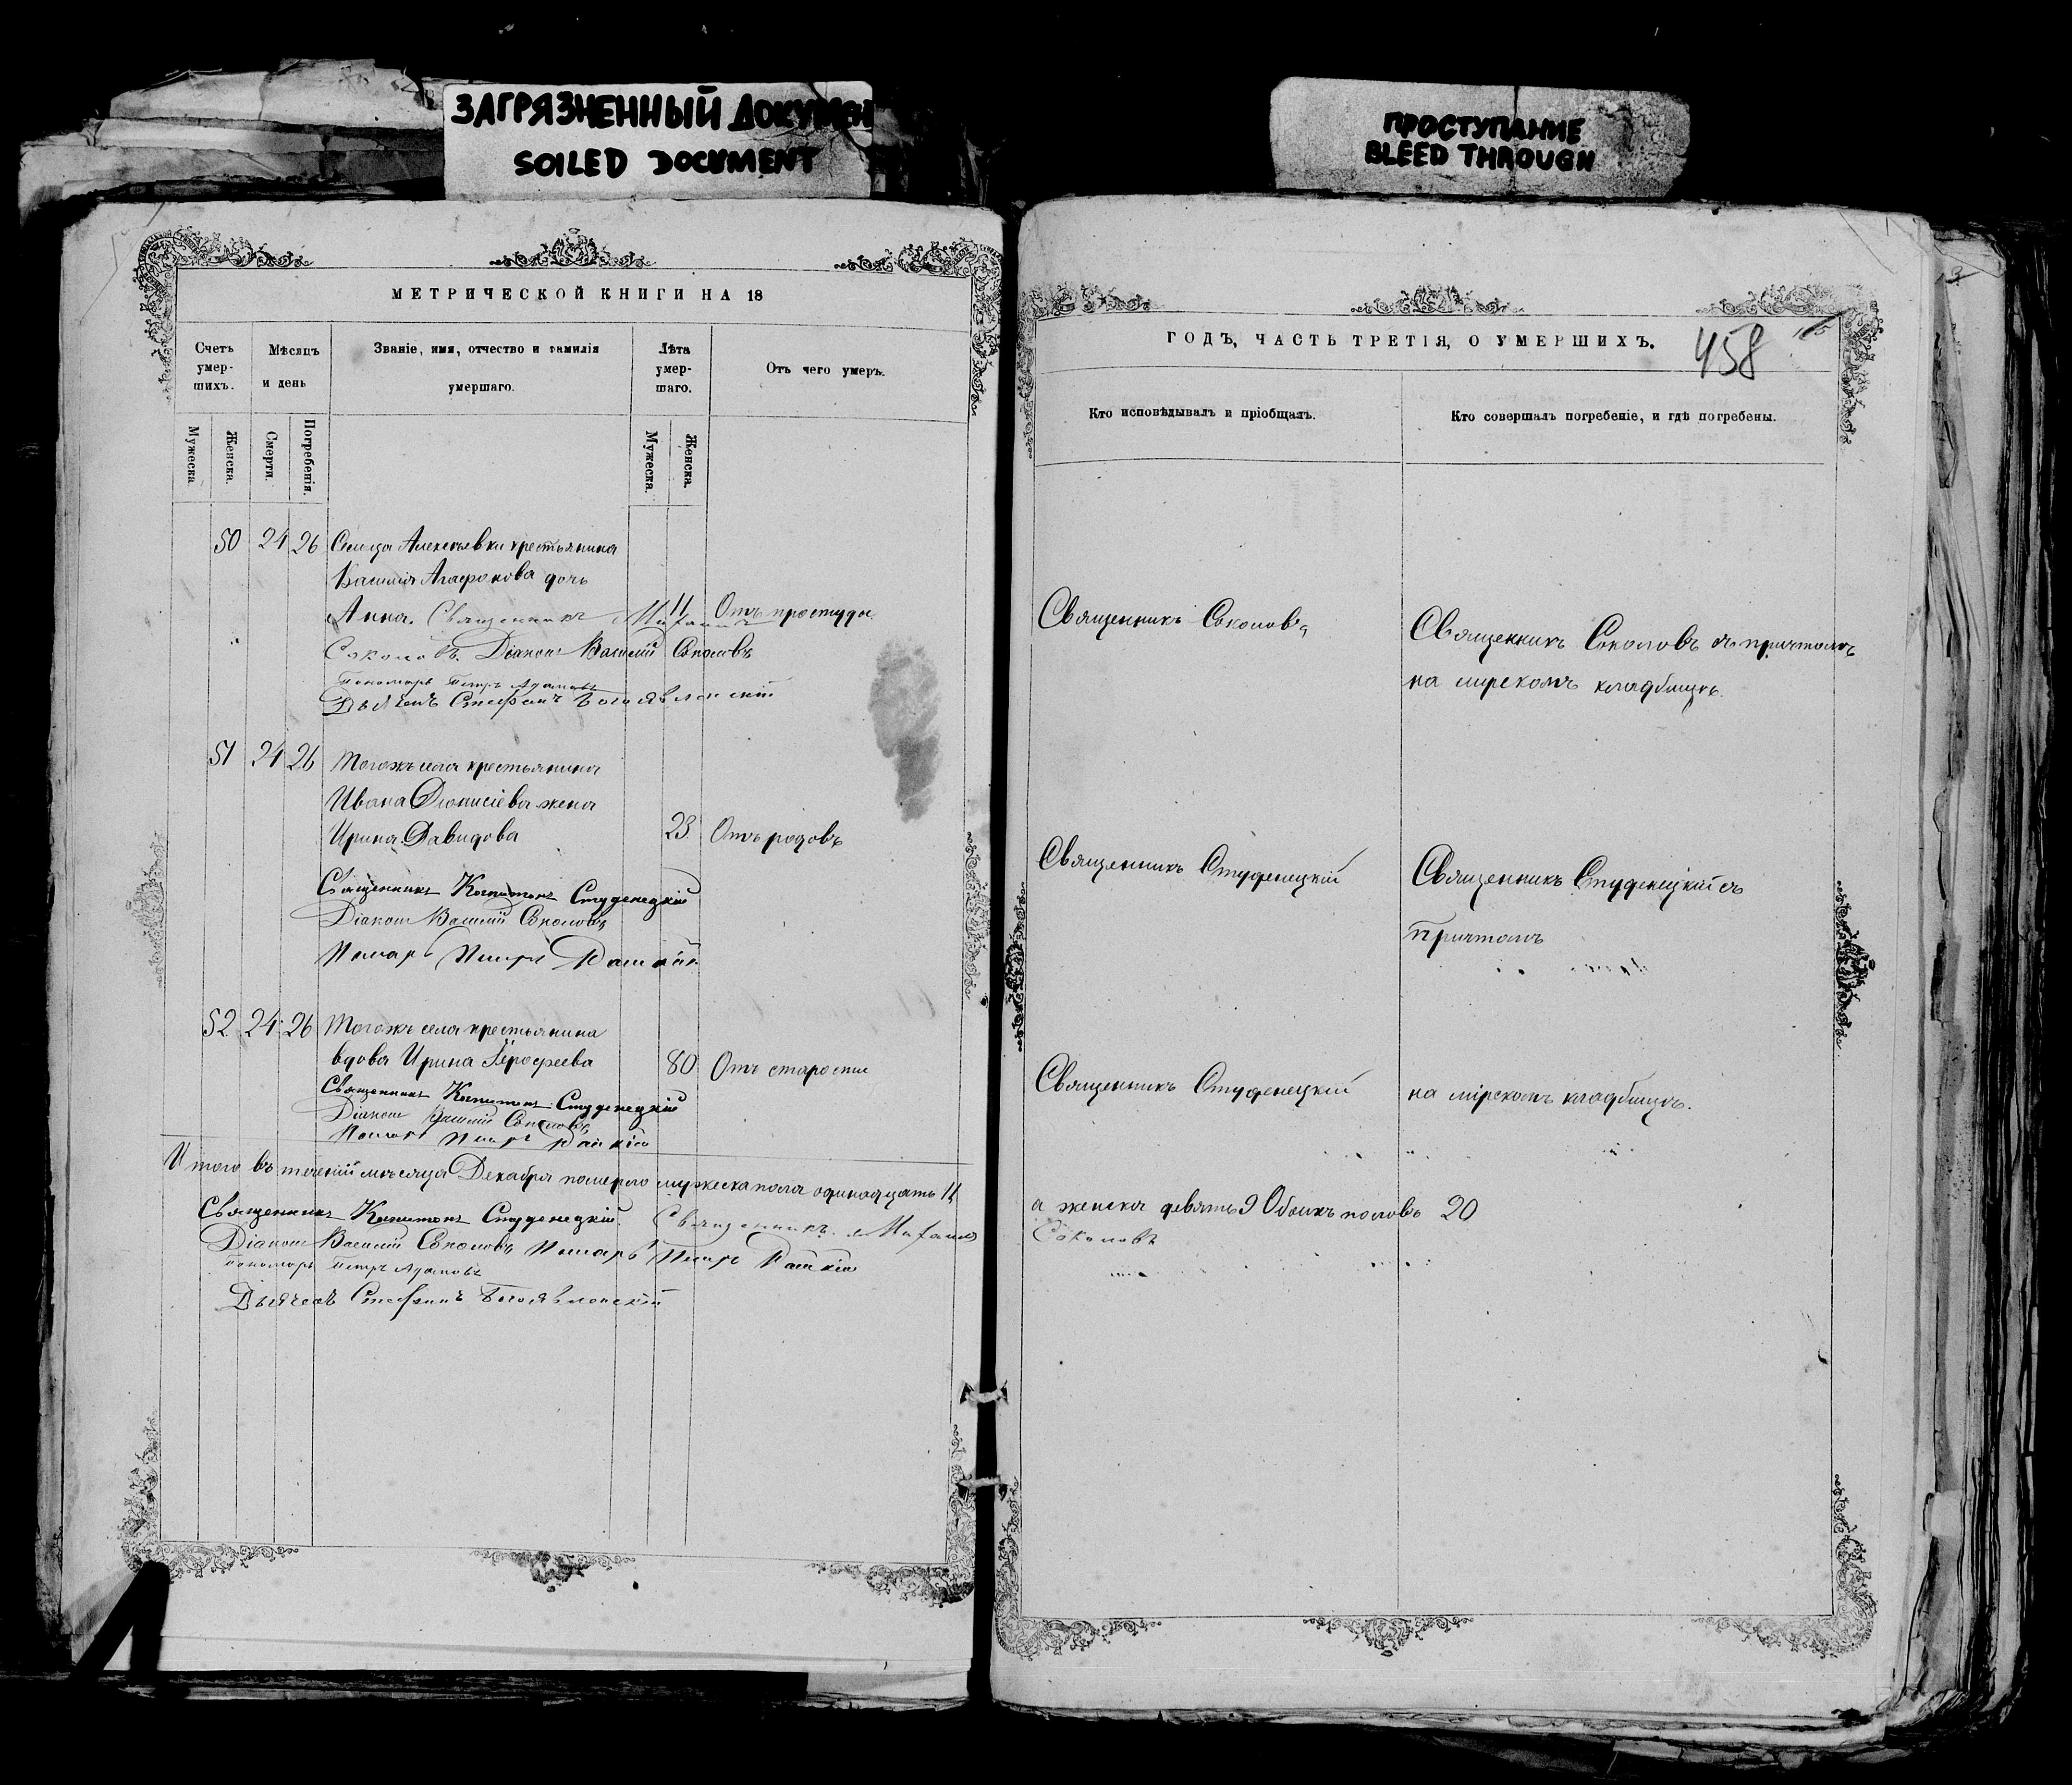 ЗАГРЯЗНЕННЫЙ ДОКУМЕН
SOILED DOCUMENT
ПРОСТУПАНИЕ
BLEED THROUGH
МЕТРИЧЕСКОЙ КНИГИ НА 18
Счетъ умер-шихъ.
Мѣсяцъ и день
Званіе, имя, отчество и фамилія умершаго.
Лѣта умер-шаго.
Отъ чего умеръ.
Мужеска.
Женска.
Смерти.
Погребенія.
Мужеска.
Женска.
50 24 26 Сельца Алексѣевки крестьянина
Василія Агафонова дочь
Анна. Священникъ Михаилъ 11 Отъ простуды
Соколовъ. Діаконъ Василій Соколовъ
Пономарь Петръ Адамовъ
Дьячекъ Стефанъ Богоявленскій
51 24 26 Тогожъ села крестьянина
Ивана Діонисіева жена
Ирина Давидова 23 Отъ родовъ
Священникъ Капитонъ Студенецкій
Діаконъ Василій Соколовъ
Петръ Райскій
52 24 26 Тогожъ села крестьянина
вдова Ирина Ерофеева 80 Отъ старости
Священникъ Капитонъ Студенецкій
Діаконъ Василій Соколовъ
Петръ Райскій
Итого въ теченіи мѣсяца Декабря померло мужеска пола одинадцать 11
Священникъ Капитонъ Студенецкій Священникъ Михаилъ
Діаконъ Василій Соколовъ Петръ Райскій
Пономарь Петръ Адамовъ
Дьячекъ Стефанъ Богоявленскій
ГОДЪ, ЧАСТЬ ТРЕТІЯ, О УМЕРШИХЪ.
458
Кто исповѣдывалъ и пріобщалъ.
Кто совершалъ погребеніе, и гдѣ погребены.
Священникъ Соколовъ
Священникъ Соколовъ съ причтомъ
на мірскомъ кладбищѣ.
Священникъ Студенецкій
Священникъ Студенецкій съ
причтомъ
Священникъ Студенецкій
на мірскомъ кладбищѣ.
а женска девять 9 Обоихъ половъ 20
Соколовъ